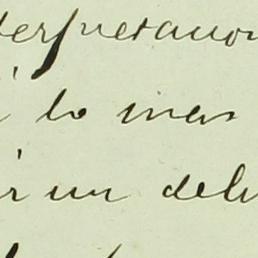 terpretacion
lo mas
ir un deli